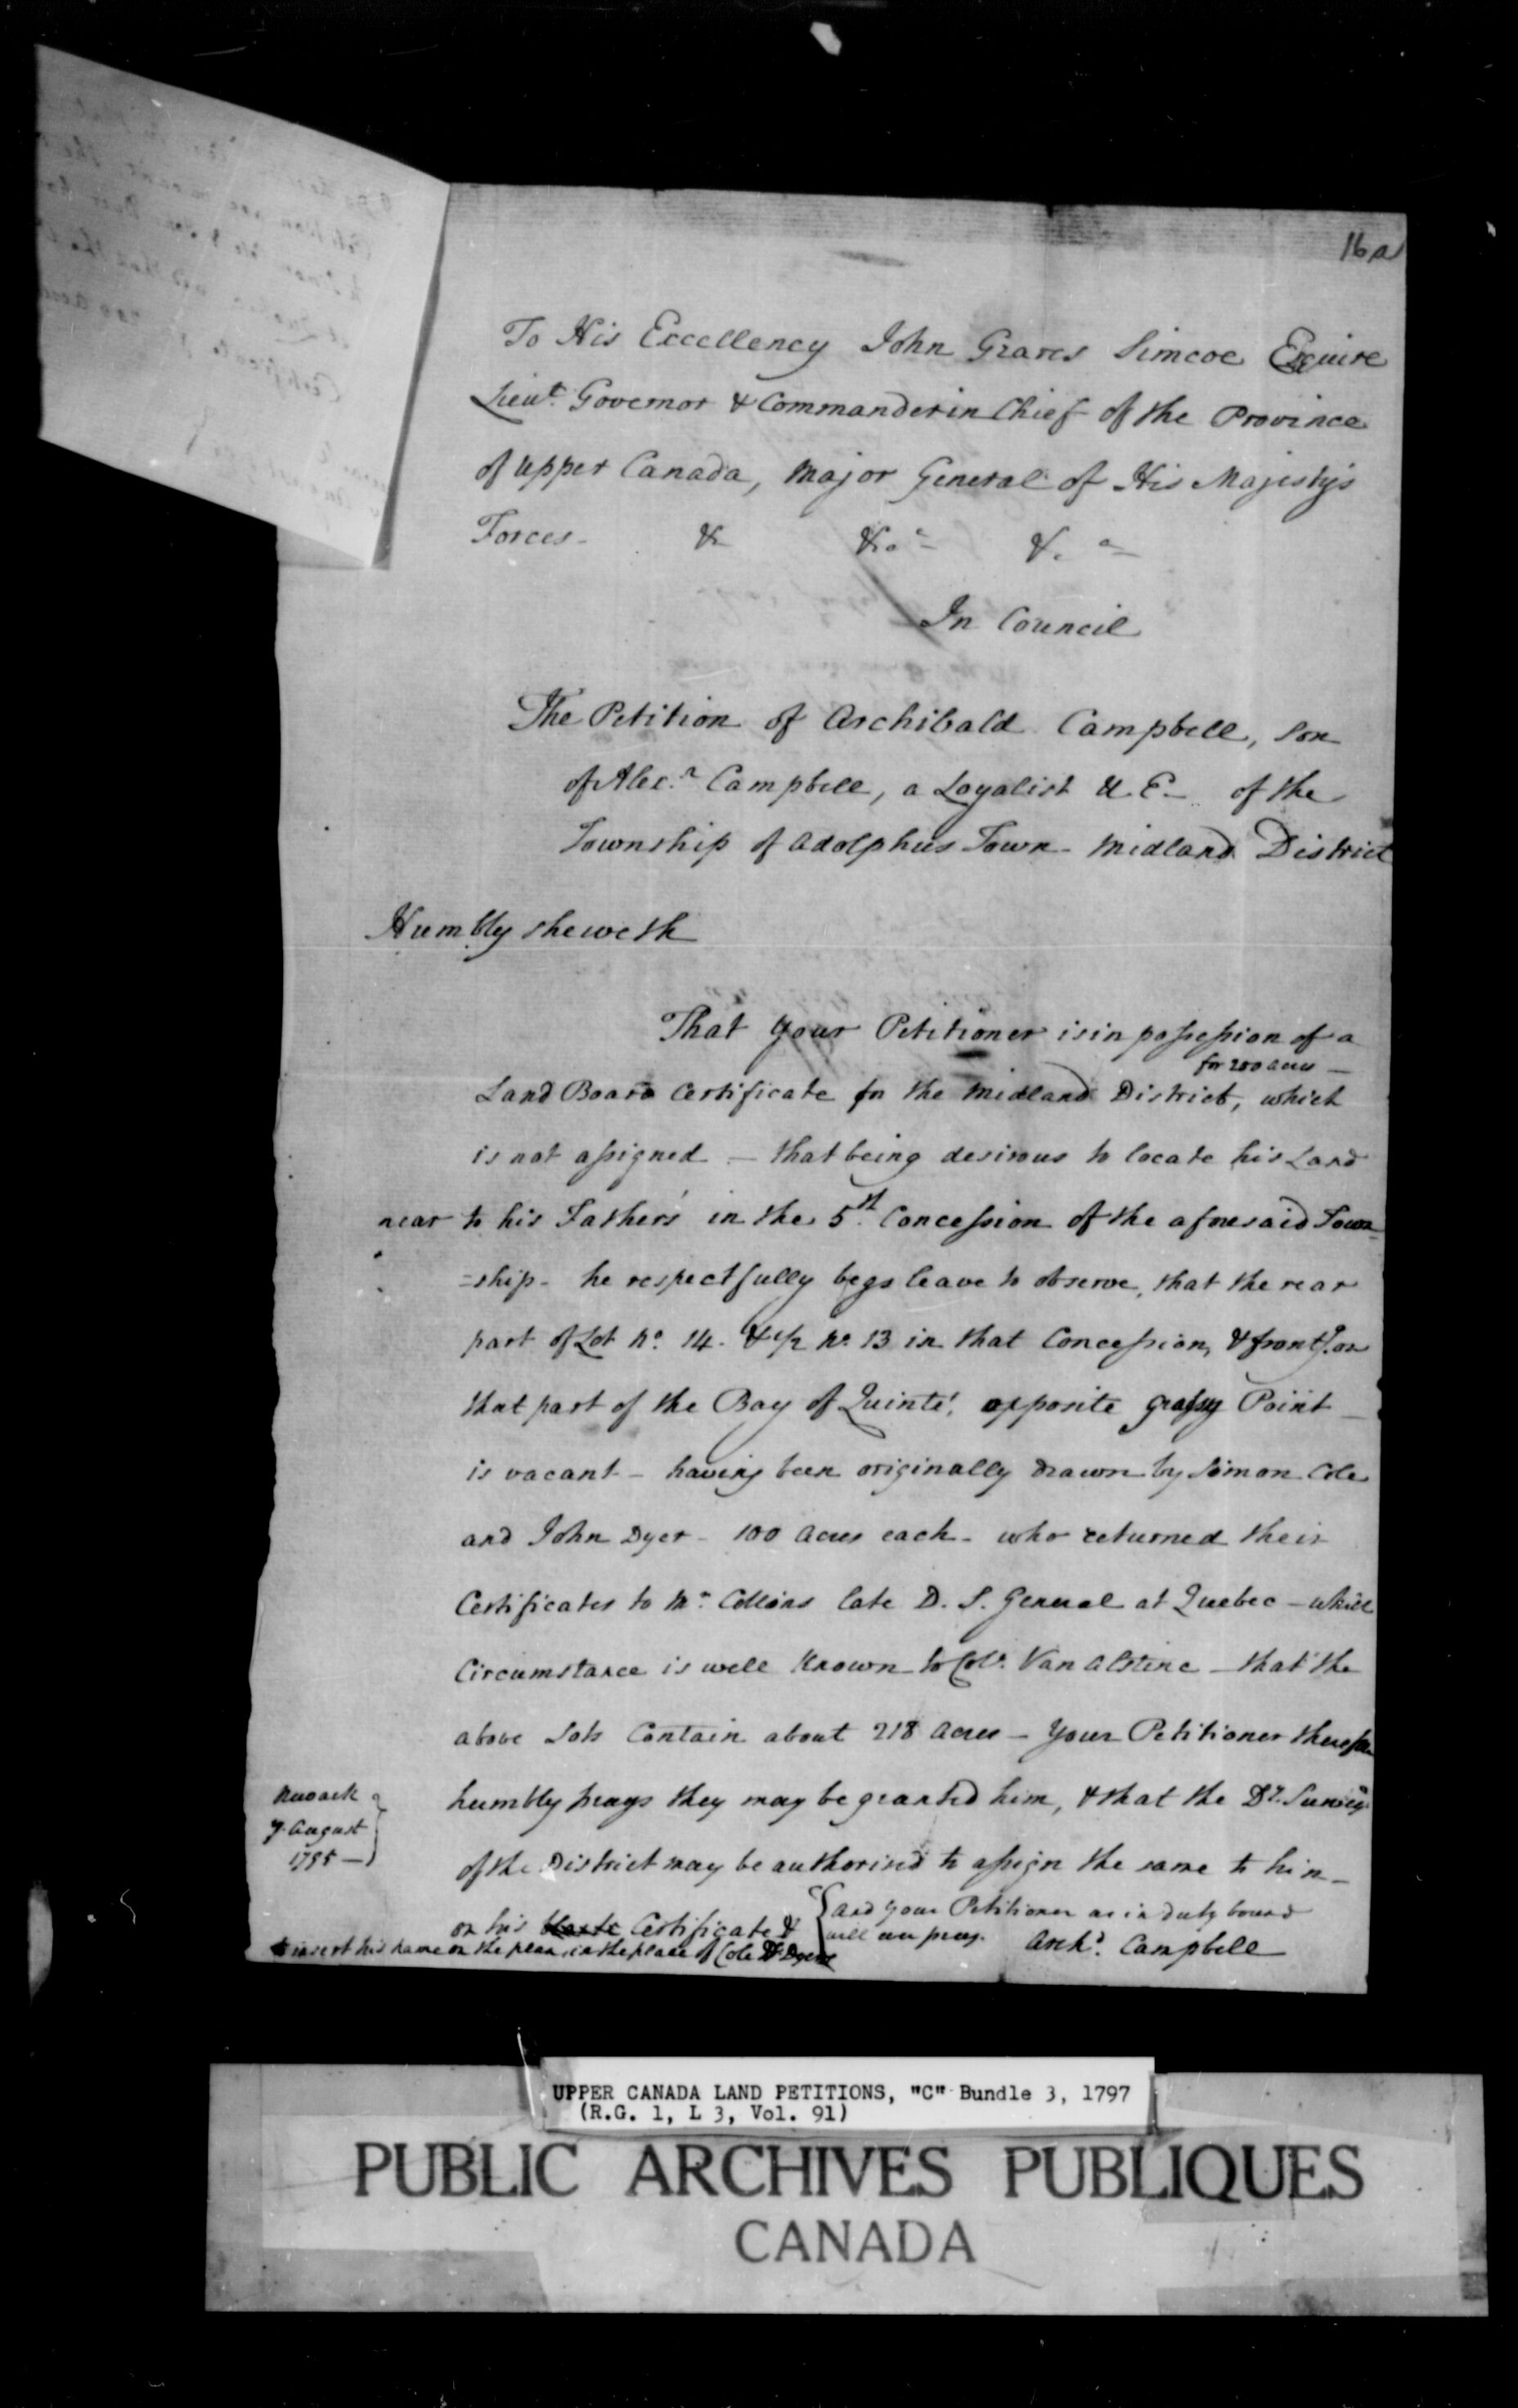 16a
To His Excellency John Graves Simcoe Esquire
Lieut. Governor & Commander in Chief of the Province
of Upper Canada, Major General of His Majesty's
Forces - & &c. &c.
In Council
The Petition of Archibald Campbell, Son
of Alexr. Campbell, a Loyalist U.E. of the
Township of Adolphus Town - Midland District
Humbly sheweth
That your Petitioner is in possession of a
for 200 acres —
Land Board Certificate for the Midland District, which
is not assigned — that being desirous to locate his Land
near to his Father's in the 5th. Concession of the aforesaid Town
=ship - he respectfully begs leave to observe, that the rear
part of Lot No. 14 - & 1/2 No. 13 in that Concession, & fronts. on
that part of the Bay of Quinté, opposite grassy Point —
is vacant - having been originally drawn by Simon Cole
and John Dyer - 100 acres each - who returned their
Certificates to Mr. Collins late D. S. General at Quebec - which
Circumstance is well known to Col. Van Alstine - that the
above Lots Contain about 218 acres - Your Petitioner therefore
humbly prays they may be granted him, & that the Dy. Survey.
of the District may be authorised to assign the same to him -
on his Certificate &
to insert his name on the plan, in the place of Cole & Dyer
{and your Petitioner as in duty bound
will ever pray.
Archd. Campbell
Newark
7 August
1795 —
UPPER CANADA LAND PETITIONS, "C" Bundle 3, 1797
(R.G. 1, L 3, Vol. 91)
PUBLIC ARCHIVES PUBLIQUES
CANADA